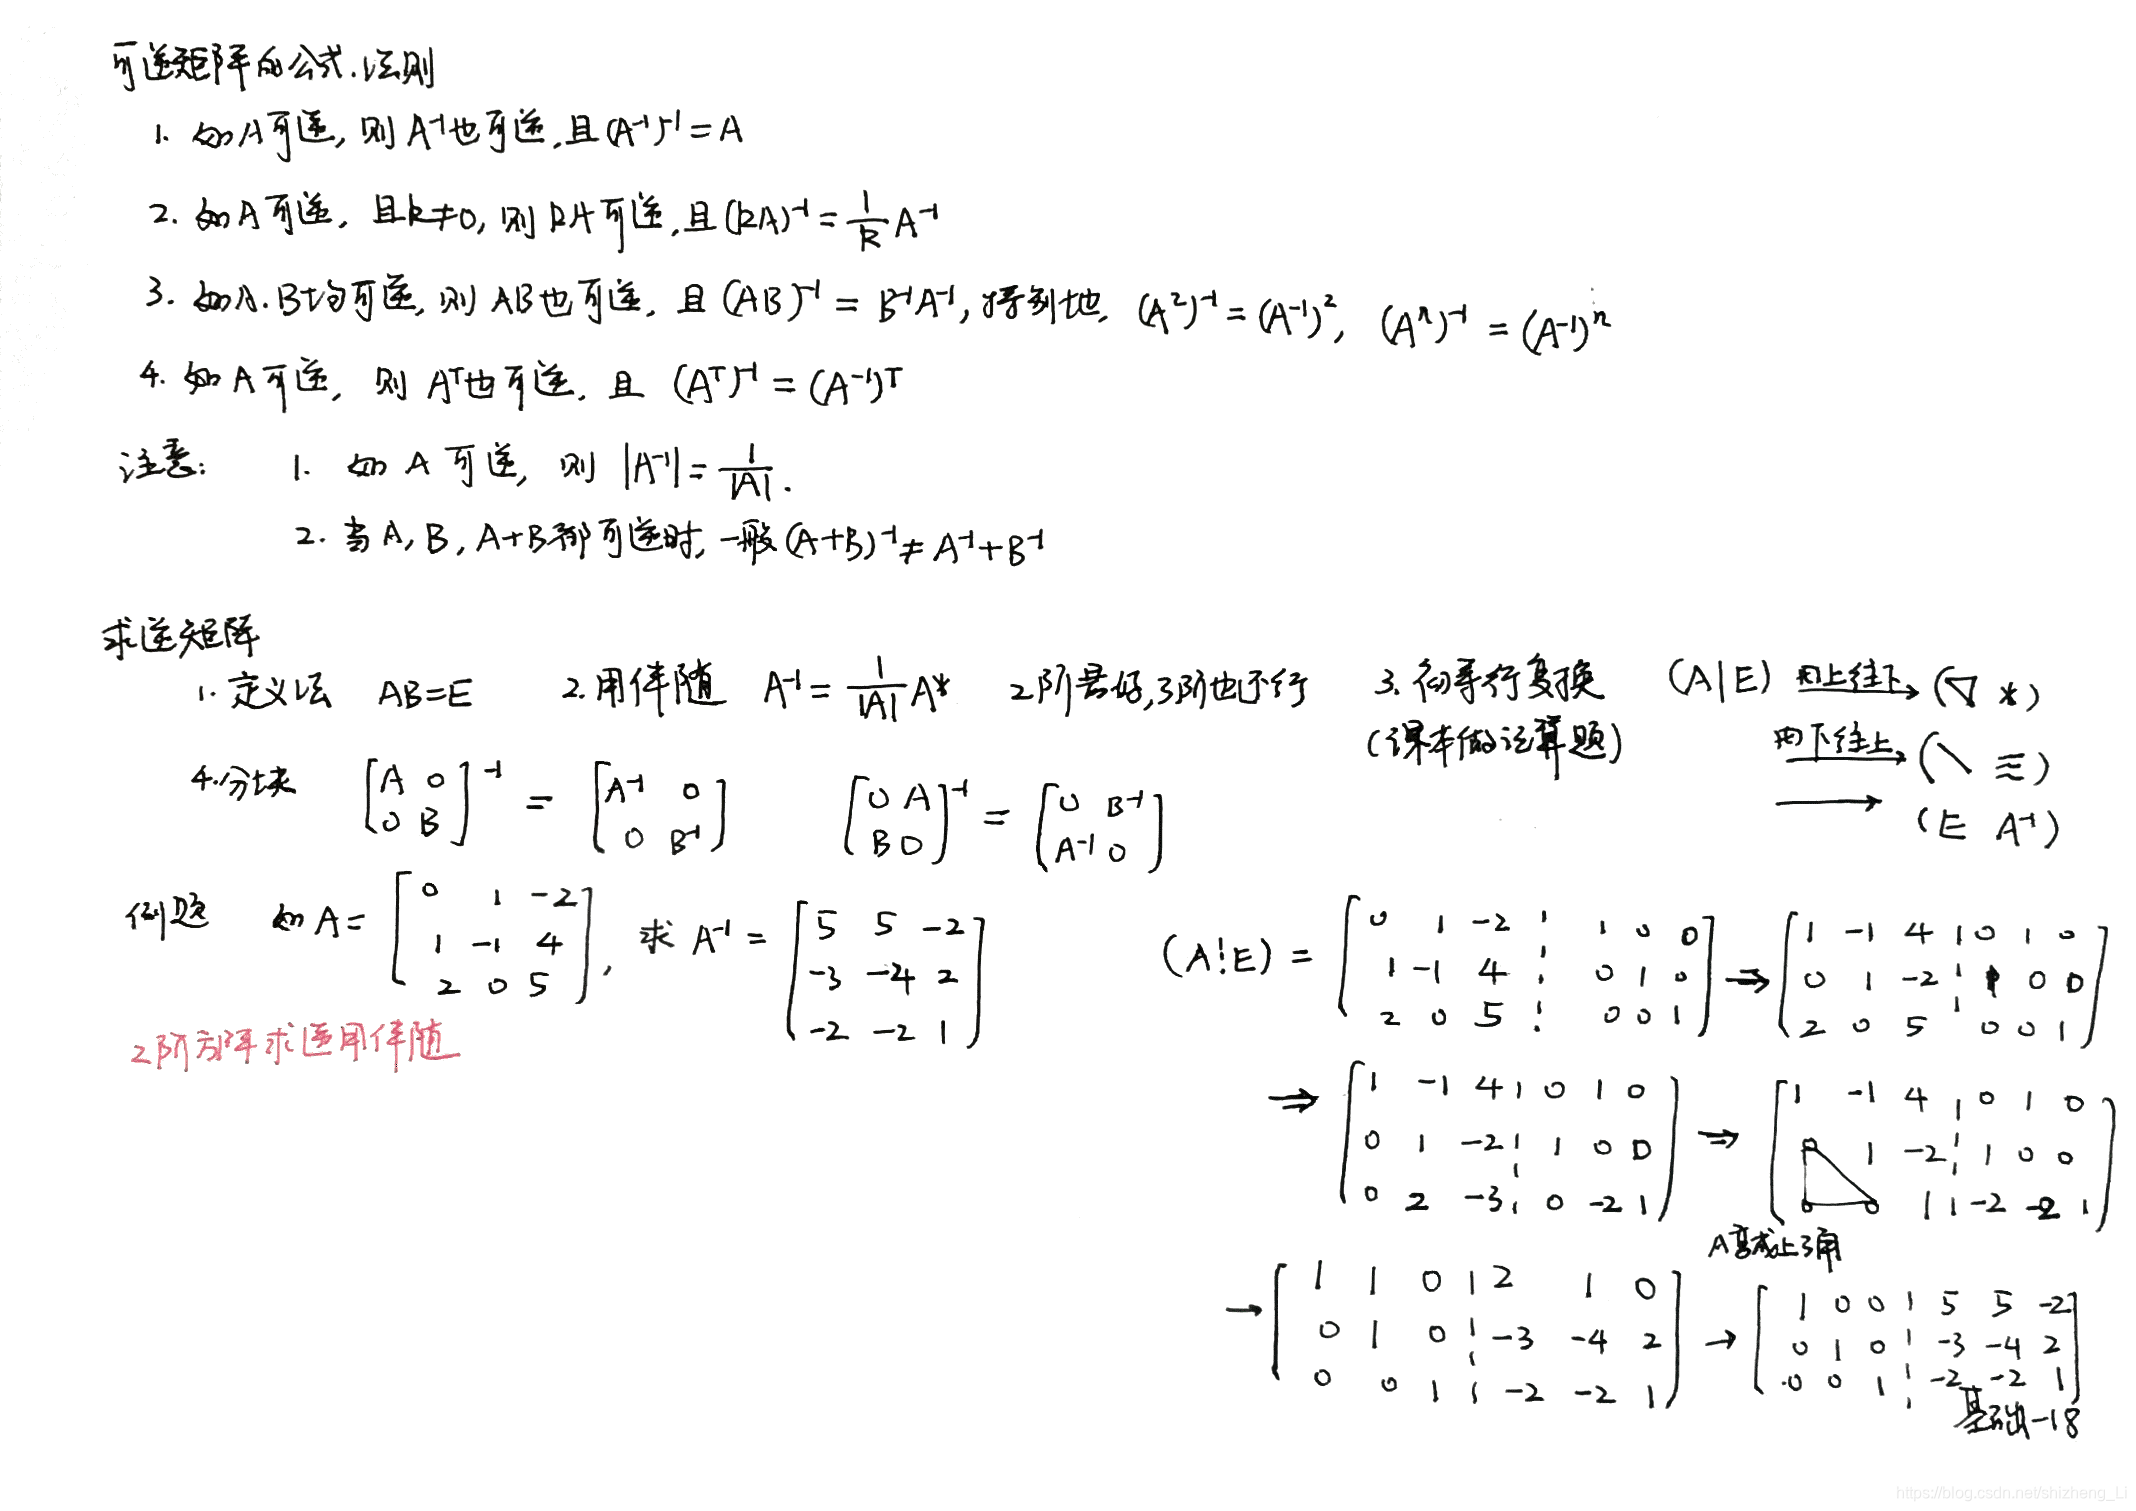 可逆矩阵的公式.法则
1. 如A可逆, 则 A⁻¹也可逆,且(A⁻¹)⁻¹=A
2. 如A可逆, 且k≠0, 则 kA可逆,且(kA)⁻¹=1/k A⁻¹
3. 如A.B均可逆, 则 AB也可逆, 且 (AB)⁻¹ = B⁻¹A⁻¹, 特别地, (A²)⁻¹=(A⁻¹)², (Aⁿ)⁻¹ = (A⁻¹)ⁿ
4. 如A可逆, 则 Aᵀ也可逆, 且 (Aᵀ)⁻¹ = (A⁻¹)ᵀ
注意: 1. 如 A 可逆, 则 |A⁻¹|=1/|A|.
2. 当A, B, A+B都可逆时, 一般(A+B)⁻¹≠A⁻¹+B⁻¹
求逆矩阵
1. 定义法 AB=E 2. 用伴随 A⁻¹=1/|A| A* 2阶最好,3阶也还行 3. 初等行变换 (A|E) 由上往下→(▽ *)
(课本做运算题) 由下往上→(╲ ≡)
→ (E A⁻¹)
4.分块 [A 0; 0 B]⁻¹ = [A⁻¹ 0; 0 B⁻¹] [0 A; B 0]⁻¹ = [0 B⁻¹; A⁻¹ 0]
例题 如A= [0 1 -2; 1 -1 4; 2 0 5], 求 A⁻¹ = [5 5 -2; -3 -4 2; -2 -2 1]
2阶方阵求逆用伴随
(A¦E) = [0 1 -2 ¦ 1 0 0; 1 -1 4 ¦ 0 1 0; 2 0 5 ¦ 0 0 1] ⇒ [1 -1 4 ¦ 0 1 0; 0 1 -2 ¦ 1 0 0; 2 0 5 ¦ 0 0 1]
⇒ [1 -1 4 ¦ 0 1 0; 0 1 -2 ¦ 1 0 0; 0 2 -3 ¦ 0 -2 1] ⇒ [1 -1 4 ¦ 0 1 0; 0 1 -2 ¦ 1 0 0; 0 0 1 ¦ -2 -2 1]
A变成上3角
→ [1 1 0 ¦ 2 1 0; 0 1 0 ¦ -3 -4 2; 0 0 1 ¦ -2 -2 1] → [1 0 0 ¦ 5 5 -2; 0 1 0 ¦ -3 -4 2; 0 0 1 ¦ -2 -2 1]
基础-18
https://blog.csdn.net/shizheng_Li